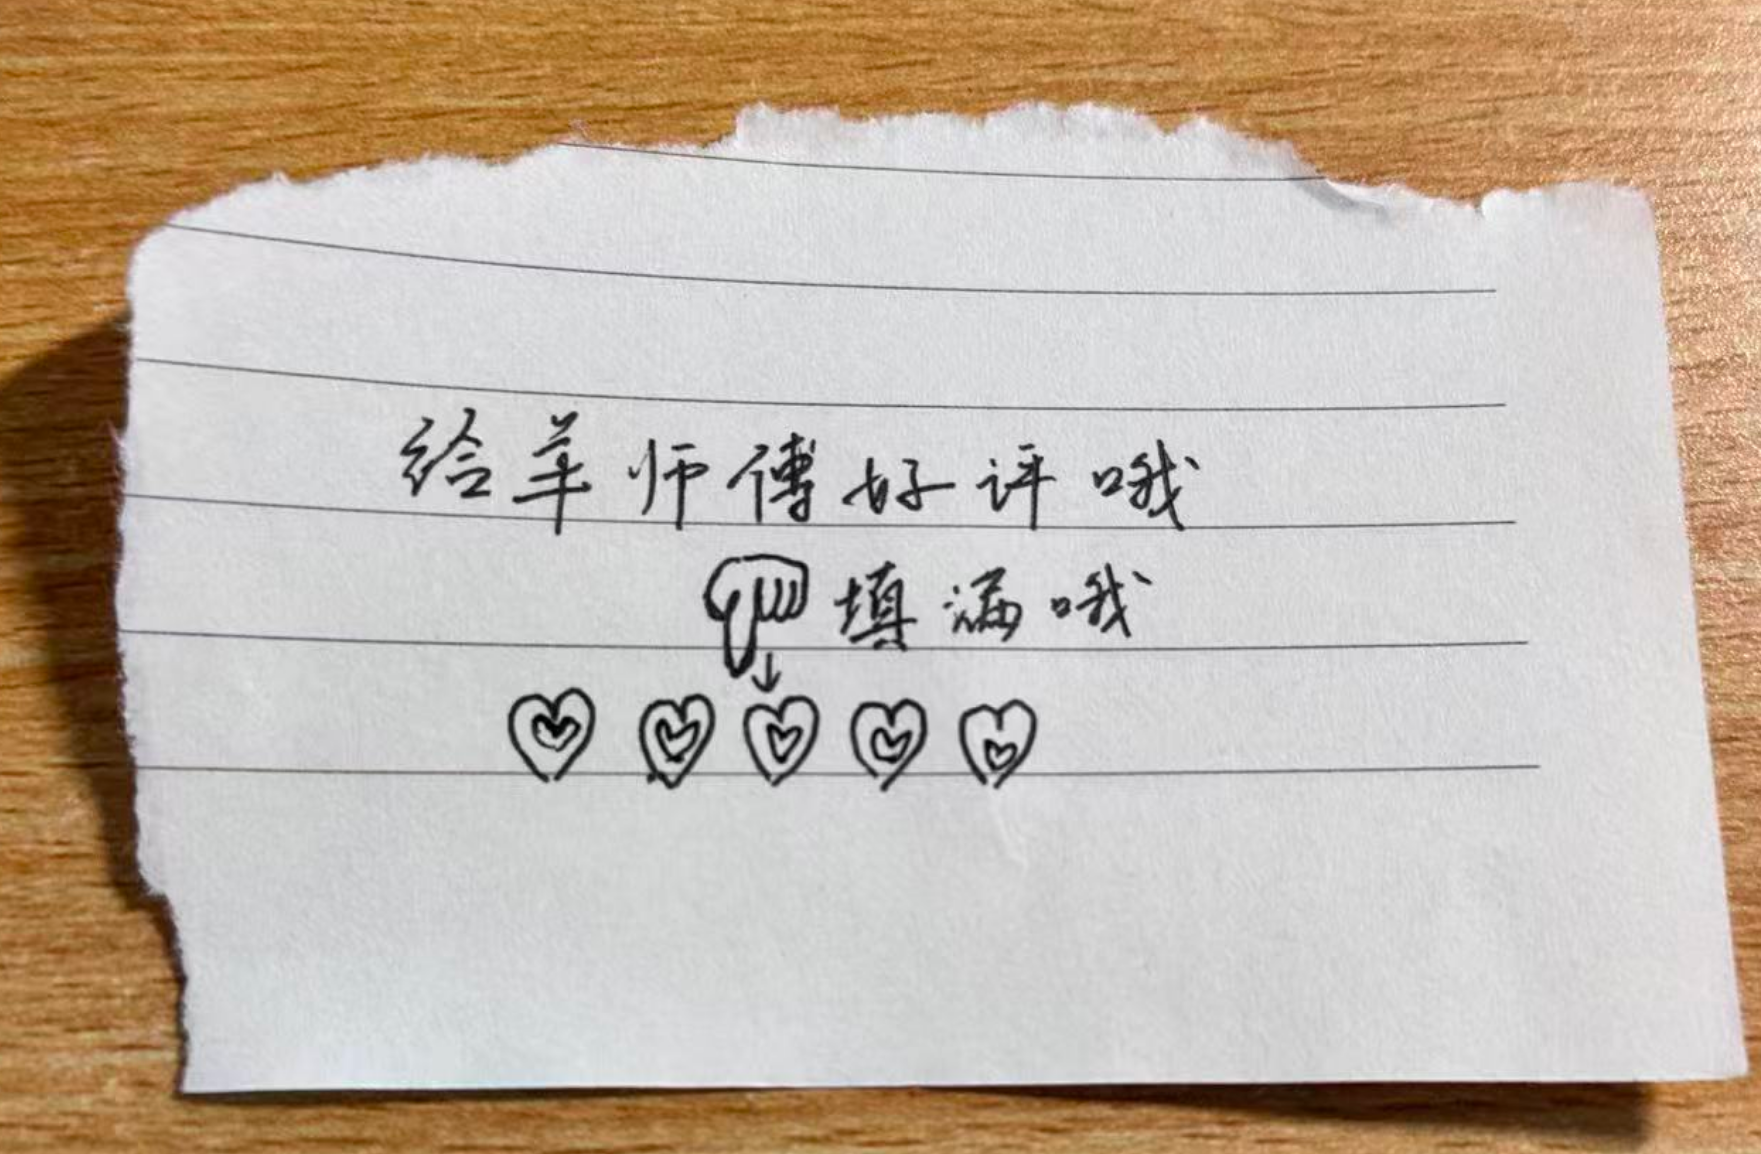 给羊师傅好评哦
填漏哦